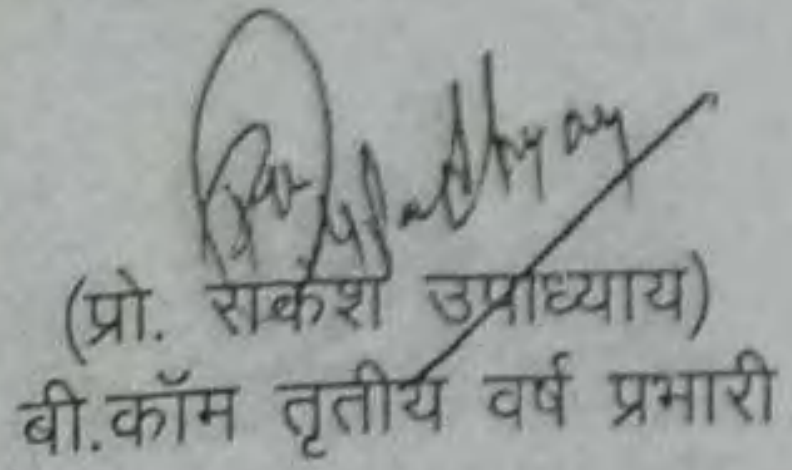 (प्रो. राकेश उपाध्याय)
बी.कॉम तृतीय वर्ष प्रभारी